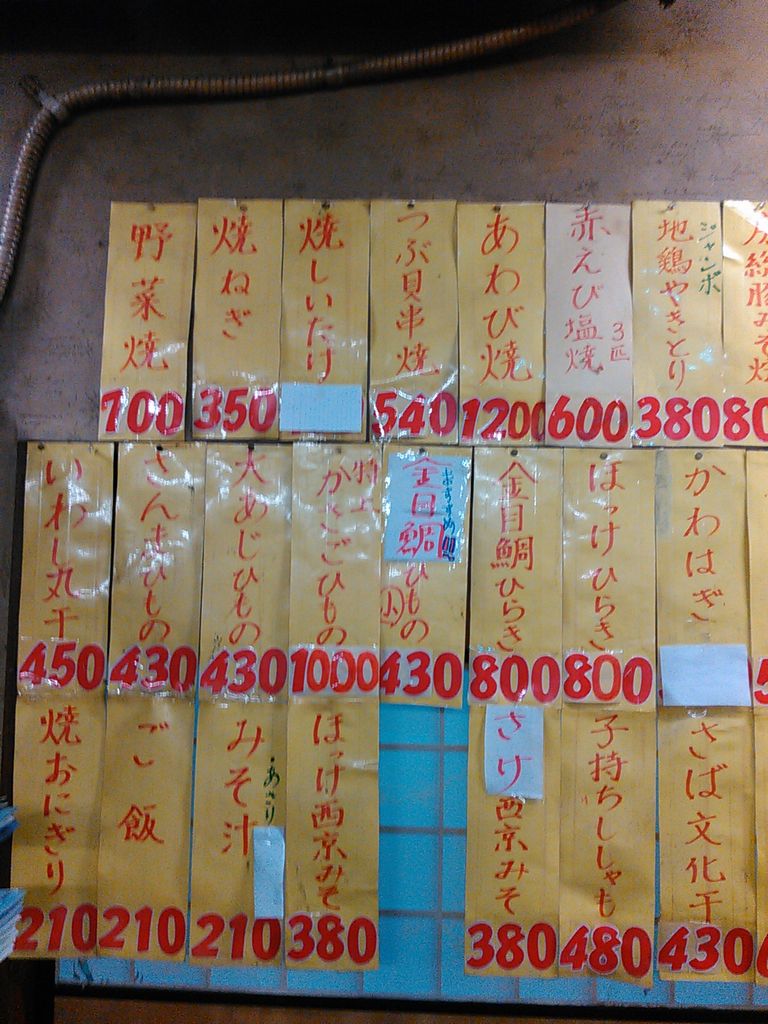 野菜焼
700
焼ねぎ
350
焼しいたけ
つぶ貝串焼
540
あわび焼
1200
赤えび塩焼
3匹
600
ジャンボ
地鶏やきとり
380
豚みそ焼
80
いわし丸干
450
さんまひもの
430
大あじひもの
430
特上
かさごひもの
1000
おすすめ品
金目鯛ひもの
小
430
金目鯛ひらき
800
ほっけひらき
800
かわはぎ
焼おにぎり
210
ご飯
210
みそ汁
・あさり
210
ほっけ西京みそ
380
さけ西京みそ
380
子持ちししゃも
480
さば文化干
430